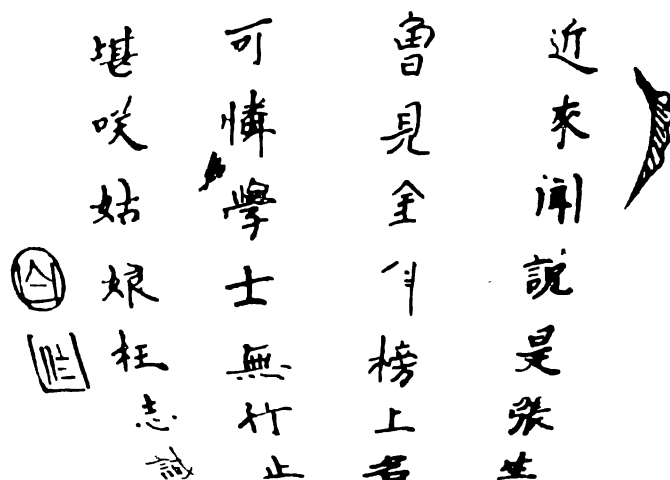 近來聞說是張生
曾見全榜上名
可憐學士無行止
堪咲姑娘枉志誠